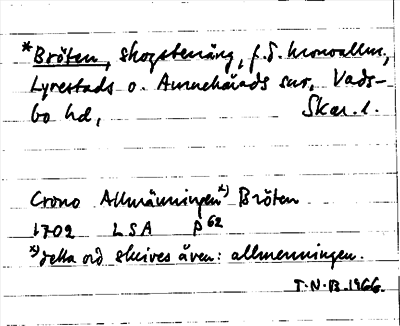 *Bröten, skogstenäng, f.d. kronoallm.,
Lyrestads o. Amnehärads snr, Vads-
bo hd, Skar. l.
Crono Allmänningen x) Bröten
1702 LSA P 62
x) detta ord skrives även: allmenningen.
T.N.B. 1966.